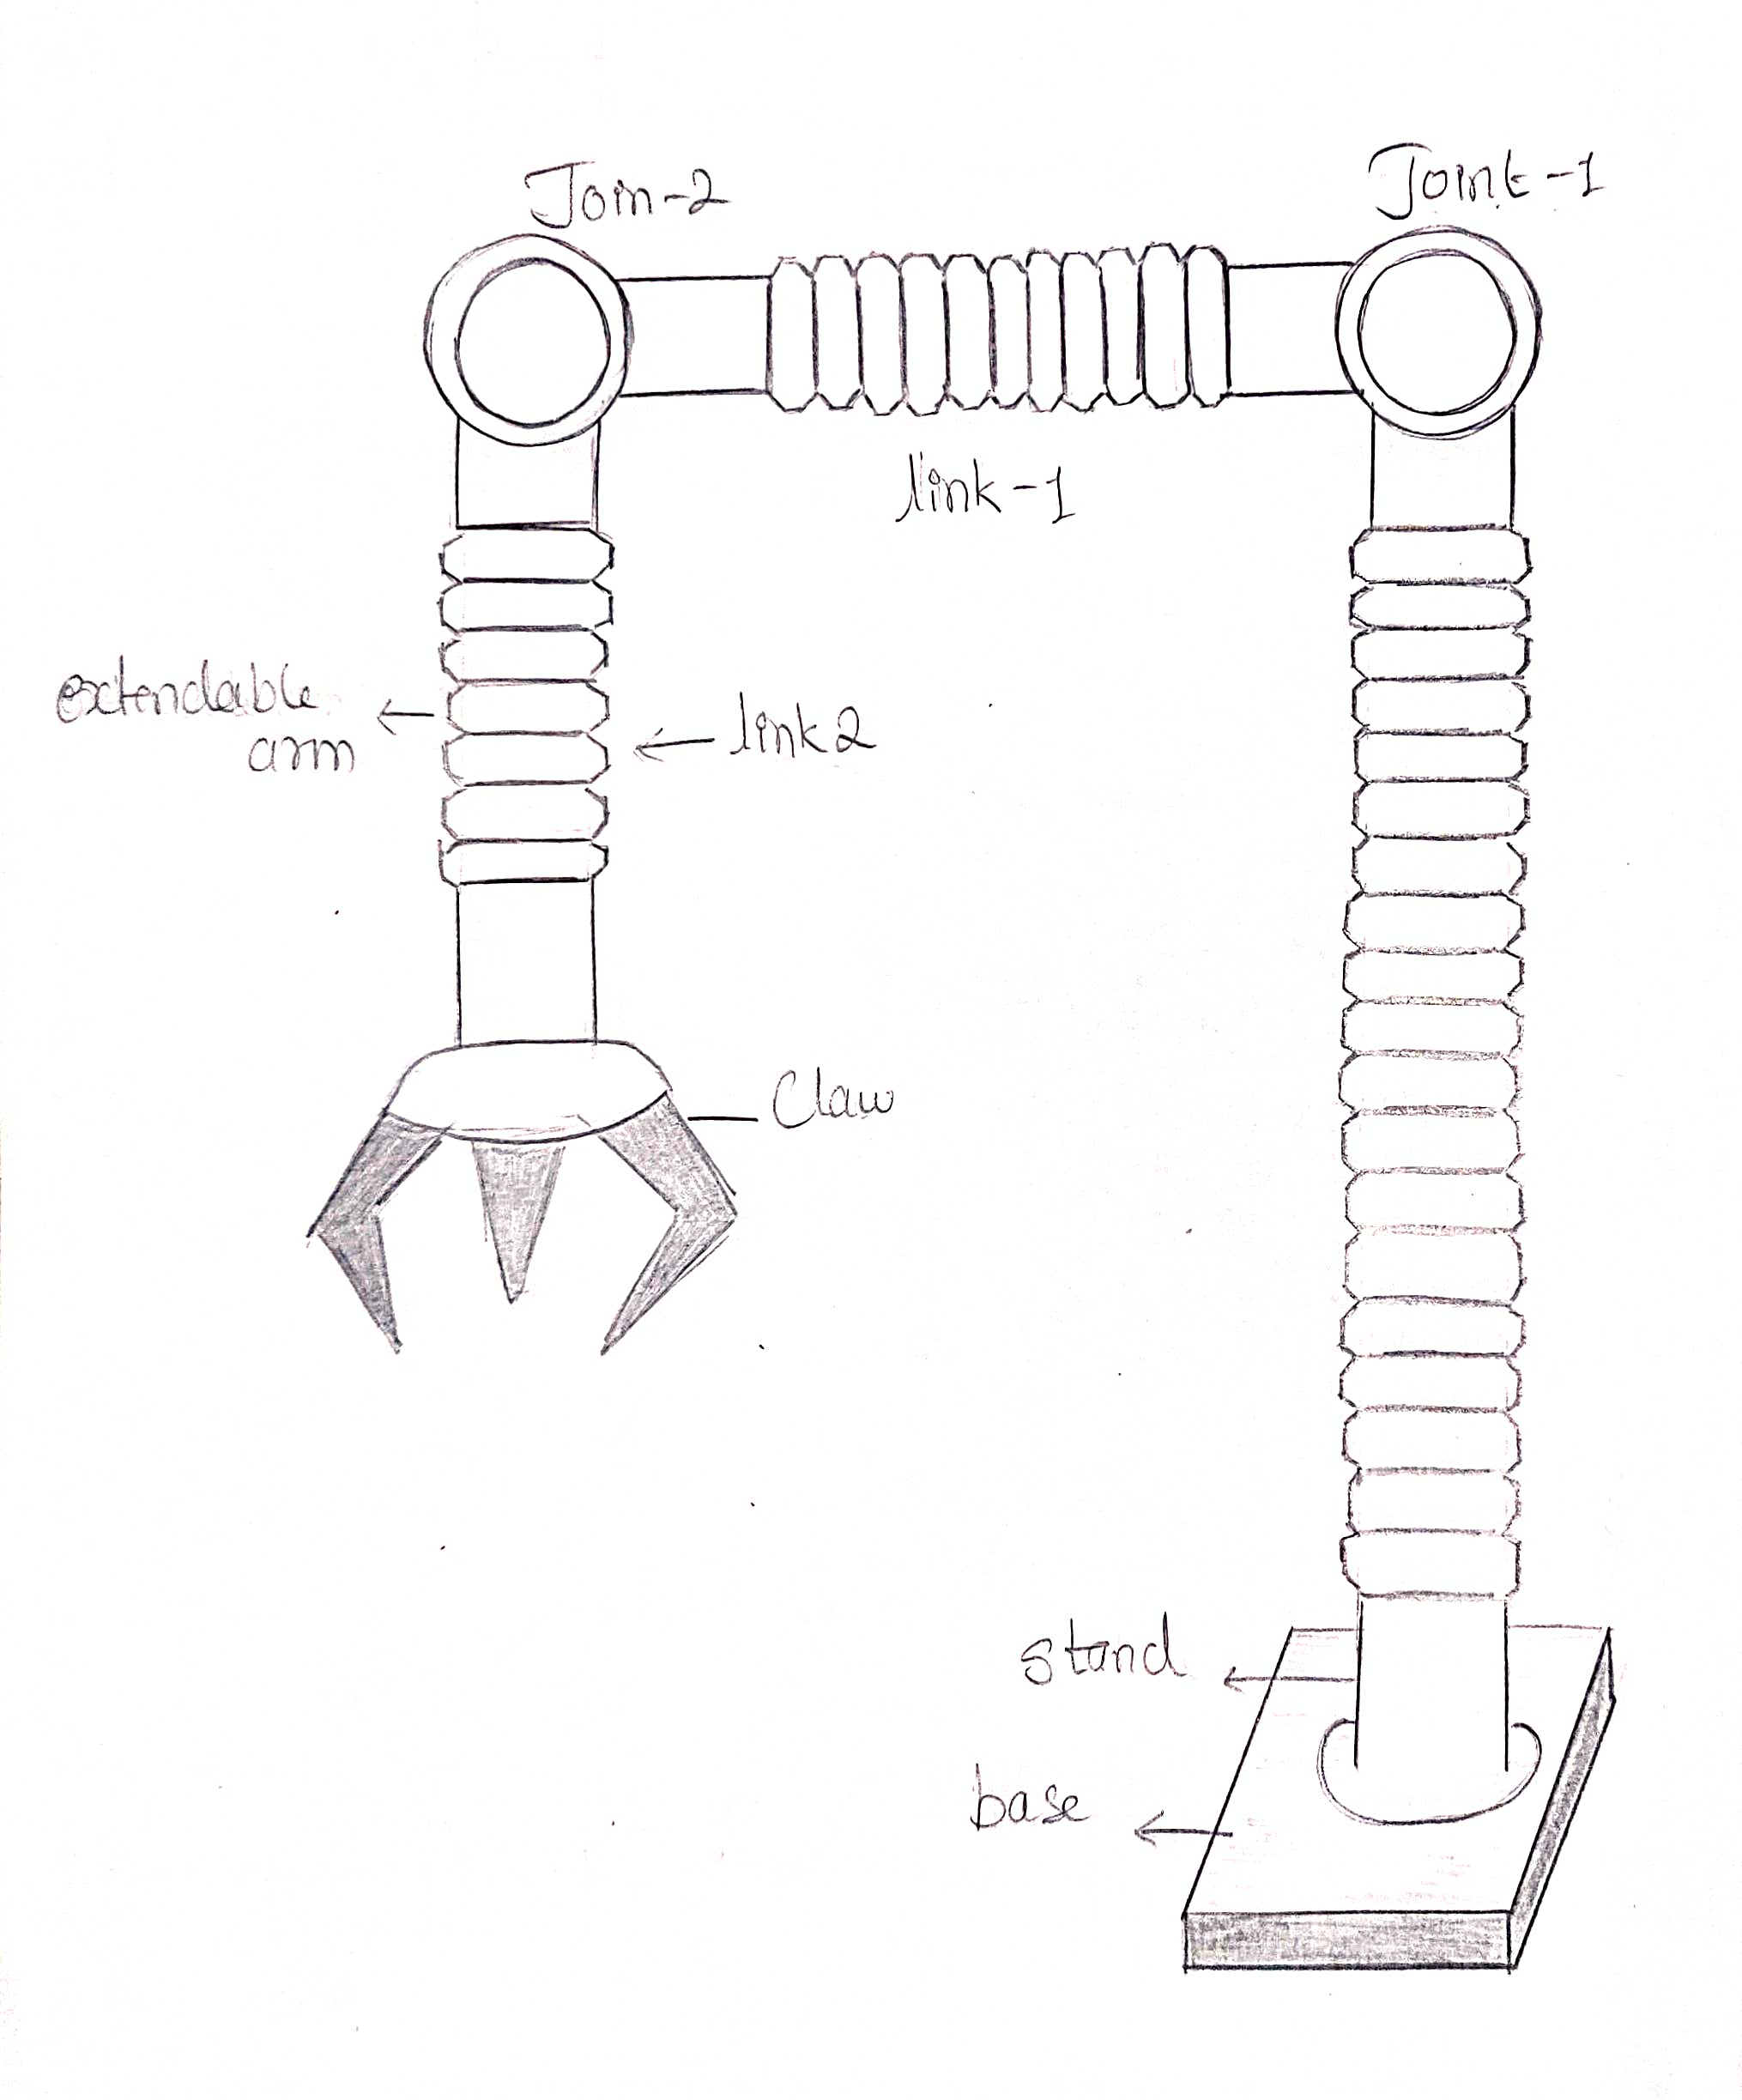 Join-2
Joint-1
link-1
extendable
arm
link2
Claw
stand
base